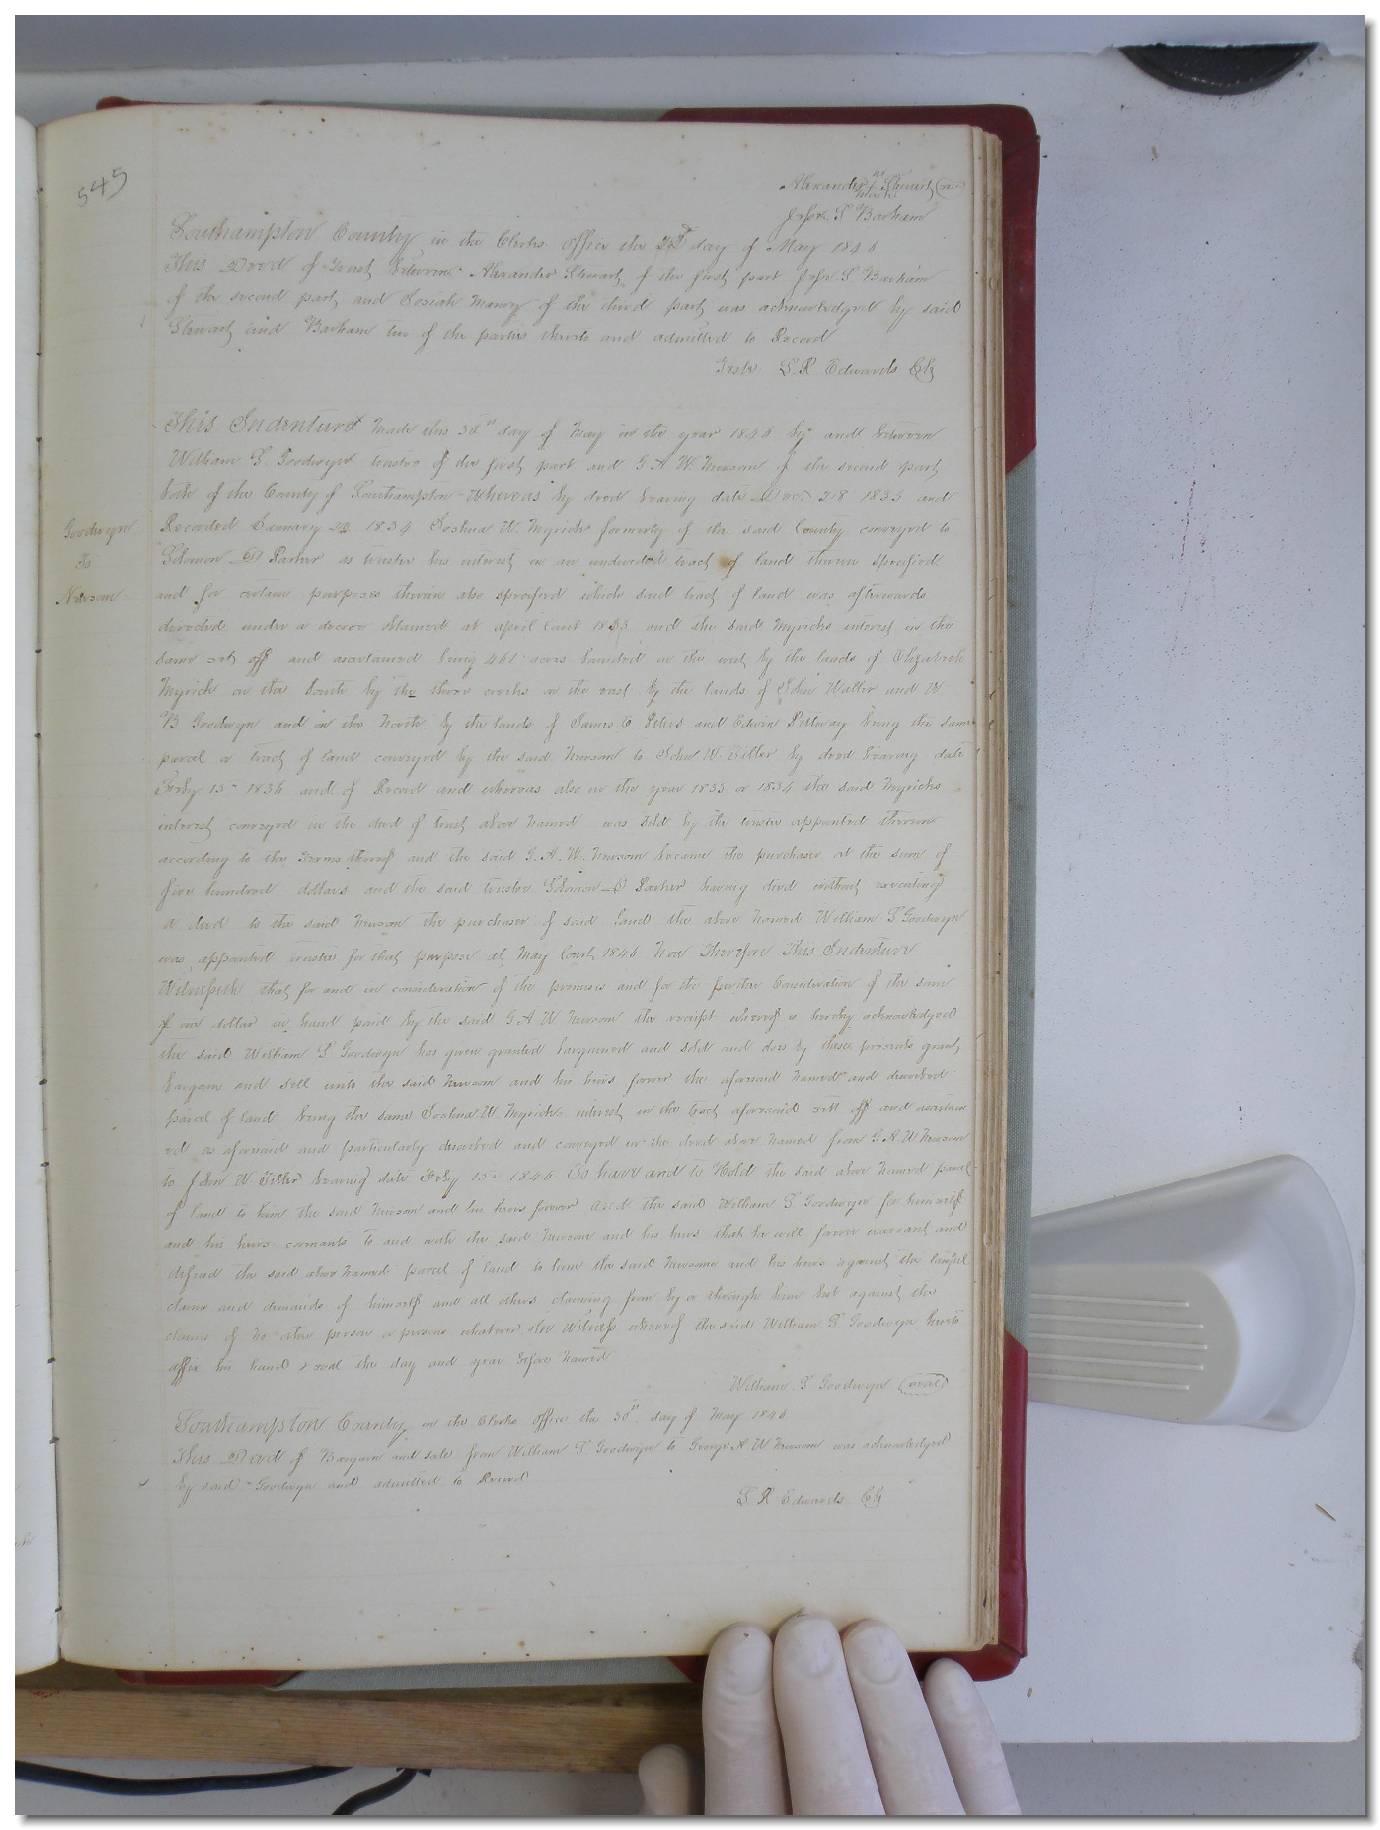 545
Alexander his mark Stewart (seal)
John S Barham
Southampton County in the Clerks office the day of May 1846
This Deed of Trust between Alexander Stewart of the first part John S Barham
of the second part and Josiah of the third part was acknowledged by said
Stewart and Barham two of the parties thereto and admitted to Record
Teste L. R. Edwards Clk
This Indenture made this 30th day of May in the year 1846 by and between
William S. Goodwyn trustee of the first part and G. A. W. Newsom of the second part
both of the County of Southampton Whereas by deed bearing date 1833 and
Recorded January 1834 Joshua W. Myrick formerly of the said County conveyed to
Solomon D Parker as trustee his interest in an undivided tract of land therein specified
Goodwyn
To
Newsom
and for certain purposes therein also specified which said tract of land was afterwards
divided under a decree obtained at april Court and the said Myricks interest in the
same set off and ascertained being 461 acres bounded on the west by the lands of Elizabeth
Myrick on the South by the three creeks on the east by the lands of John Waller and W
B Goodwyn and on the North by the lands of James C Peters and Edwin Pettway being the same
parcel or tract of land conveyed by the said Newsom to John W. Tiller by deed bearing date
Feby 15 1836 and of Record and whereas also in the year 1833 or 1834 the said Myricks
interest conveyed in the deed of trust above named was sold by the trustee appointed therein
according to the terms thereof and the said G. A. W. Newsom became the purchaser at the sum of
five hundred dollars and the said trustee Solomon D Parker having died without executing
a deed to the said Newsom the purchaser of said land the above named William S Goodwyn
was appointed trustee for that purpose at May Court 1846 Now Therefore This Indenture
Witnesseth that for and in consideration of the premises and for the further Consideration of the sum
of one dollar in hand paid by the said G. A. W Newsom the receipt whereof is hereby acknowledged
the said William S Goodwyn has given granted bargained and sold and does by these presents grant
bargain and sell unto the said Newsom and his heirs forever the aforesaid named and described
parcel of land being the same Joshua W. Myricks interest in the tract aforesaid sett off and ascertain
ed as aforesaid and particularly described and conveyed in the deed above named from G. A. W Newsom
to John W Tiller bearing date Feby 15 To have and to Hold the said above named parcel
of land to him the said Newsom and his heirs forever And the said William S Goodwyn for himself
and his heirs covenants to and with the said Newsom and his heirs that he will forever warrant and
defend the said above named parcel of land to him the said Newsom and his heirs against the lawful
claims and demands of himself and all others claiming from by or through him but against the
claims of no other person or persons whatever In Witness whereof the said William S Goodwyn hereto
affix his hand & seal the day and year before named
William S Goodwyn (seal)
Southampton County in the Clerks office the 30th day of May 1846
This Deed of Bargain and sale from William S Goodwyn to George A W Newsom was acknowledged
by said Goodwyn and admitted to Record
L R Edwards Clk